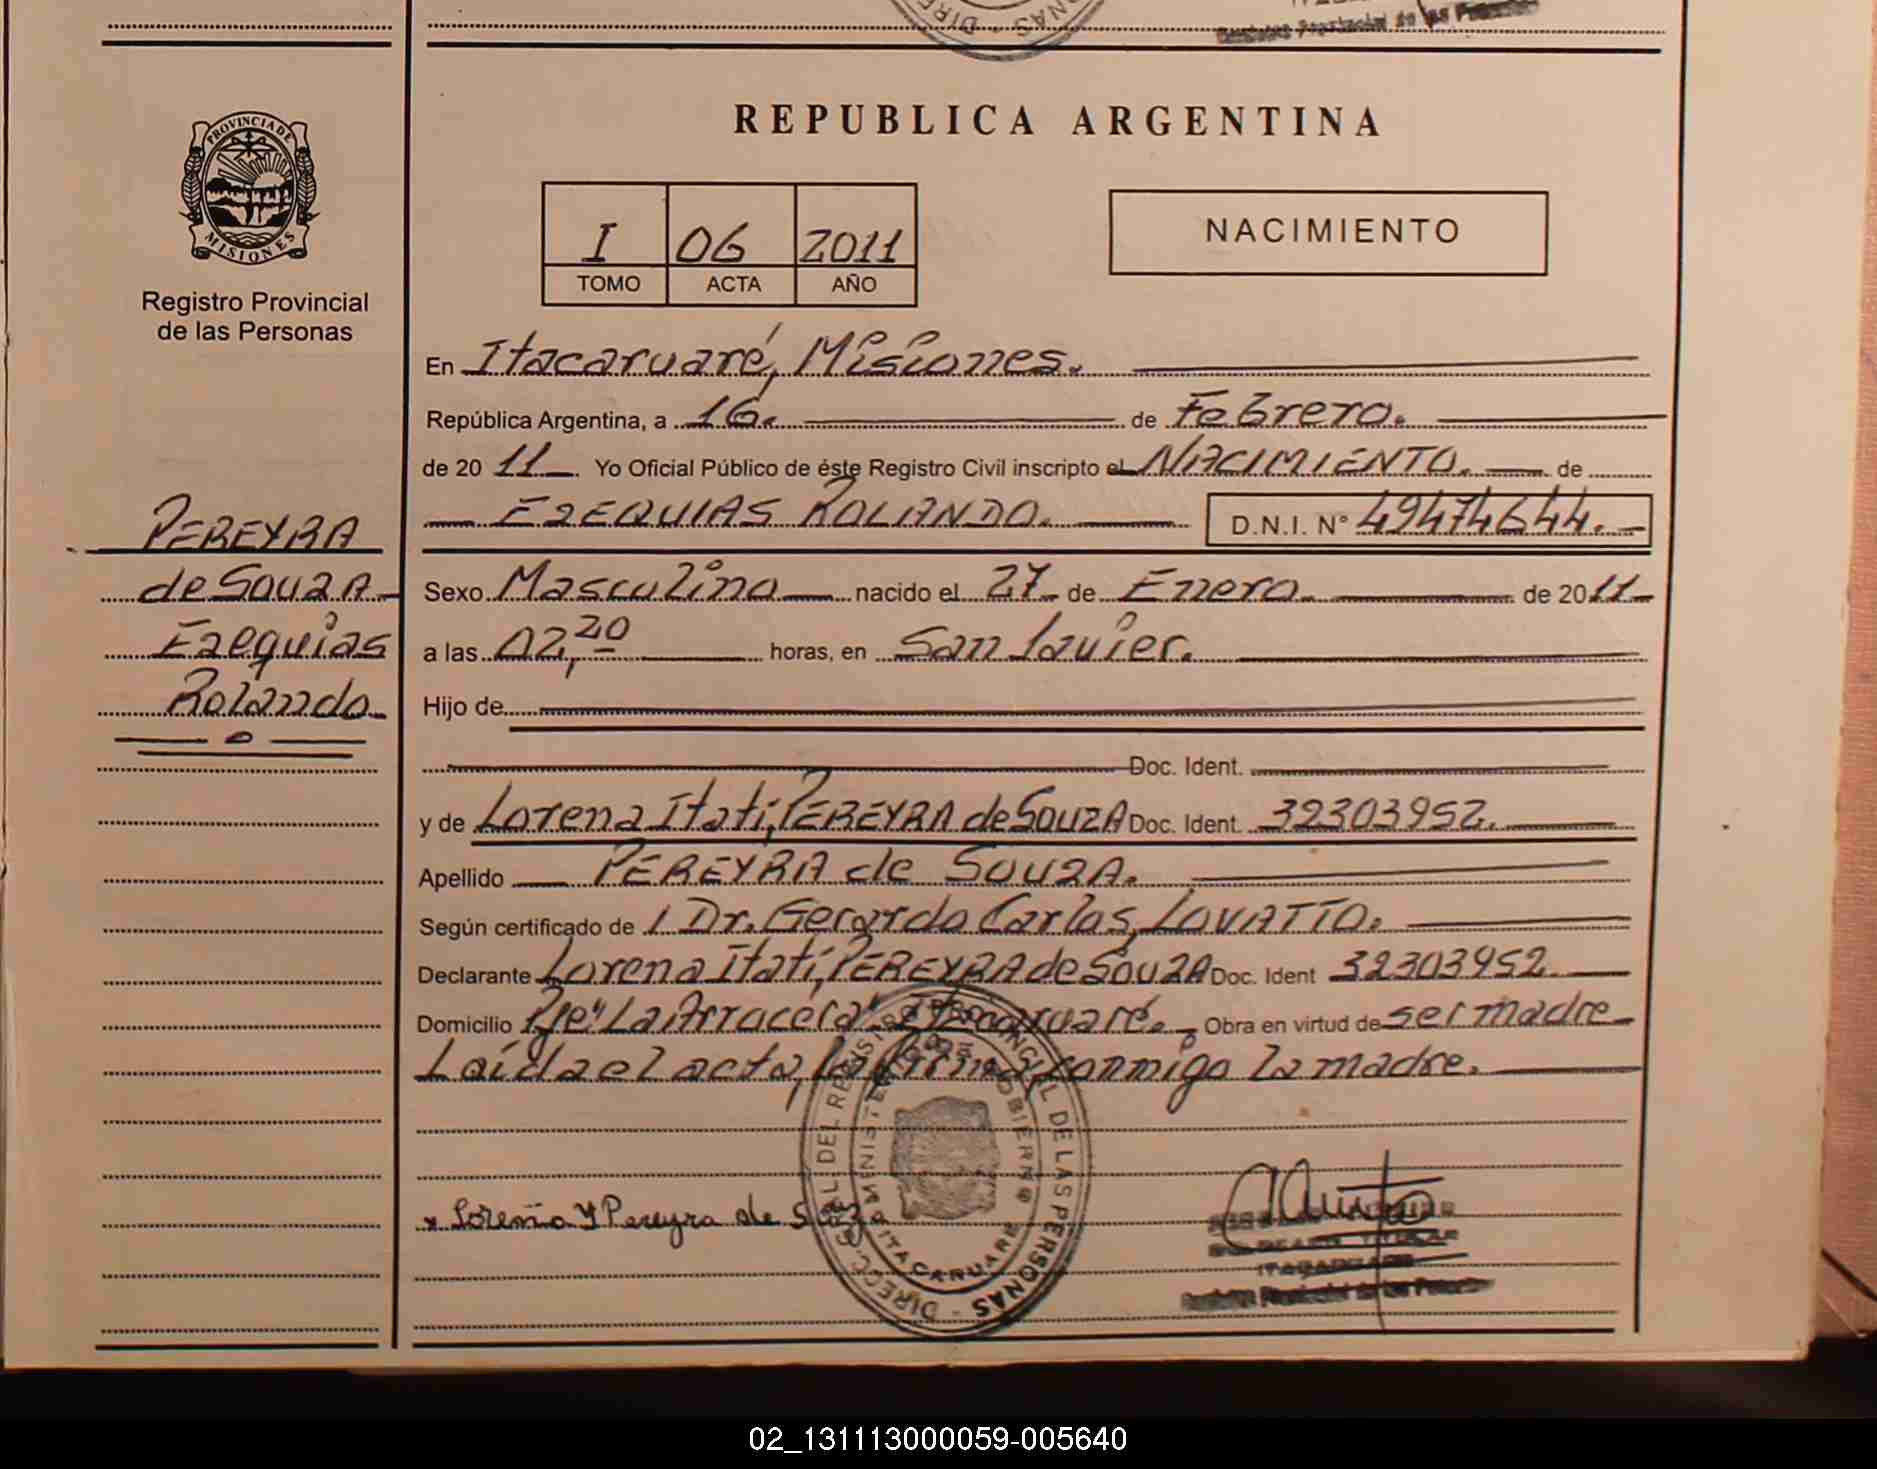 PROVINCIA DE
MISIONES
Registro Provincial
de las Personas
PEREYRA
de SouzA
Ezequias
Rolando
REPUBLICA ARGENTINA
I 06 2011
TOMO ACTA AÑO
NACIMIENTO
En Itacaruaré, Misiones.
República Argentina, a 16. de Febrero.
de 20 11 Yo Oficial Público de éste Registro Civil inscripto el NACIMIENTO. de
EZEQUIAS ROLANDO. D.N.I. N° 49474644.
Sexo Masculino nacido el 27 de Enero. de 2011
a las 02,20 horas, en San Javier.
Hijo de
Doc. Ident.
y de Lorena Itatí, PEREYRA de SOUZA Doc. Ident. 32303952.
Apellido PEREYRA de SOUZA.
Según certificado de Dr. Gerardo Carlos, LOVATTO.
Declarante Lorena Itatí, PEREYRA de SOUZA Doc. Ident 32303952
Domicilio Pje "La Arrocera" Itacaruaré. Obra en virtud de ser madre
Laída el acta, la firma conmigo la madre.
DIRECC. GRAL DEL REGISTRO PROVINCIAL DE LAS PERSONAS
ITACARUARE
Lorena Y Pereyra de
ITACARUARE
02_131113000059-005640